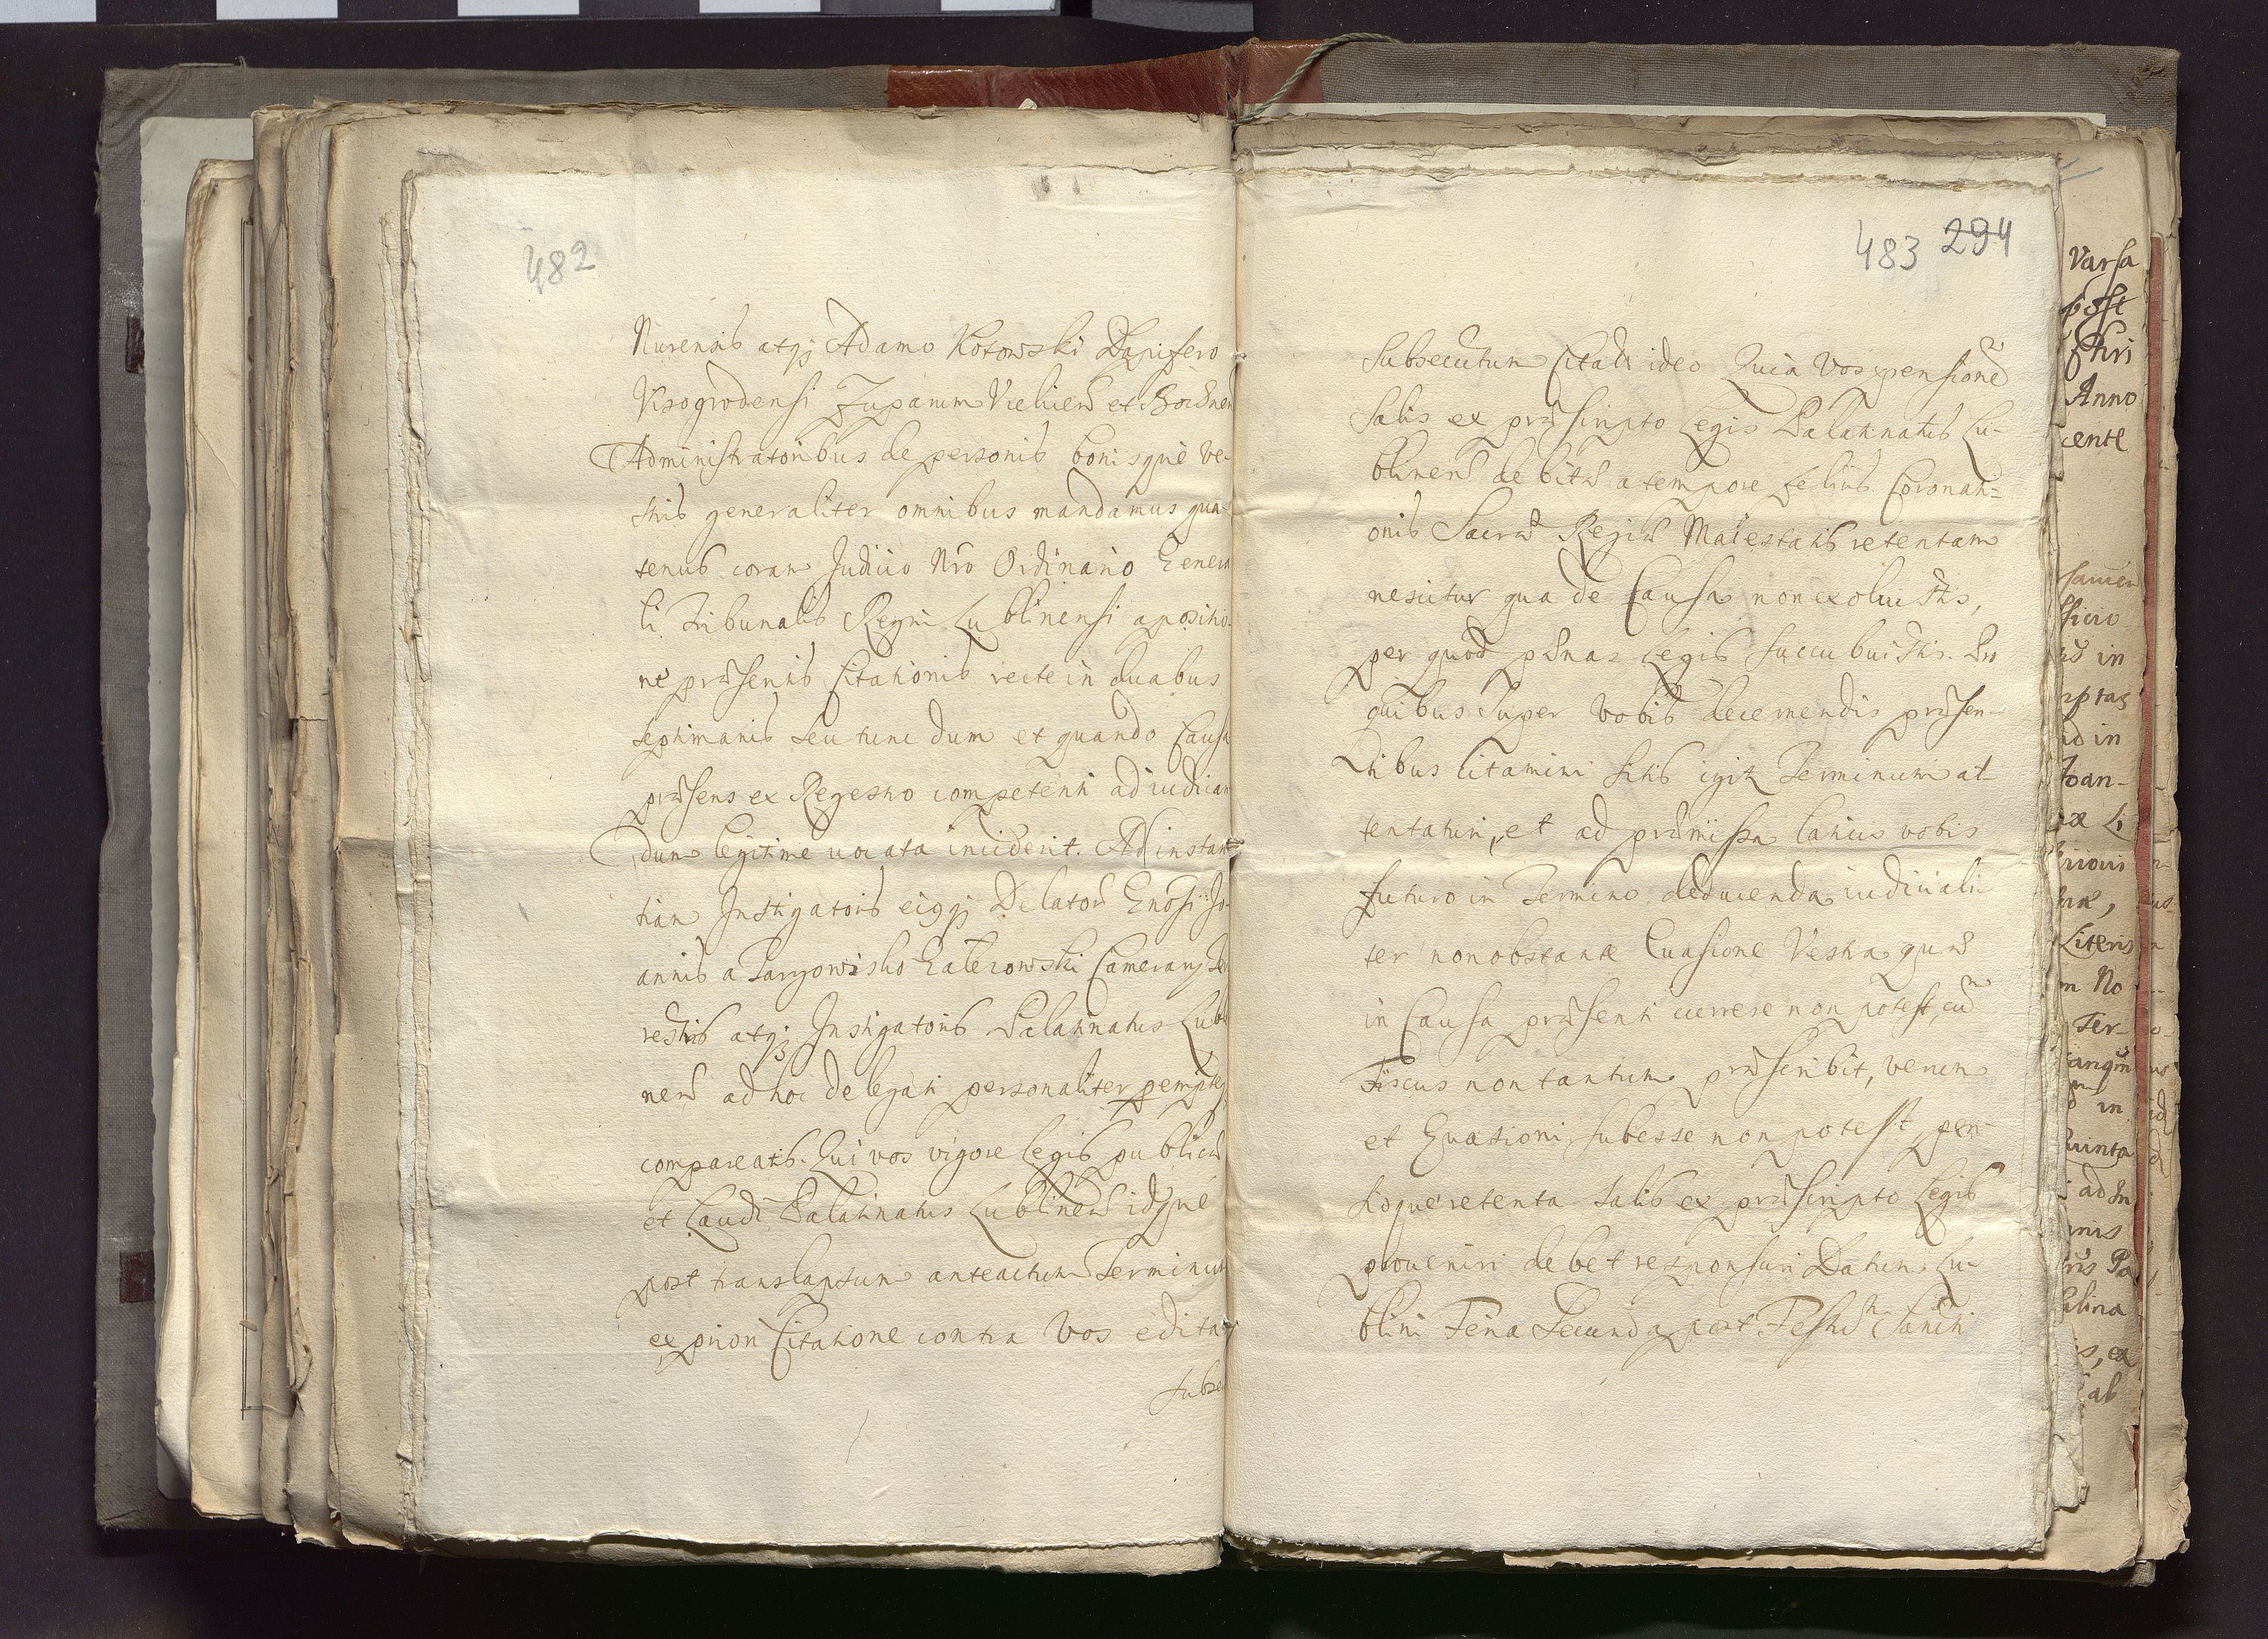 482
Nurensis atqz Adamo Kotowski Dapifero
Visogrodensi Zuparum Vielicen et Bochnen
Administratoribus de personis bonisque ve-
stris generaliter omnibus mandamus qua-
tenus coram Judicio Nro Ordinario Genera
li Tribunalis Regni Lublinensi apositio-
ne præsentis Citationis recte in duabus
septimanis seu tunc dum et quando Causa
præsens ex Regestro competenti ad iudican
dum legitime vocata inciderit. Ad instan
tiam Instigatoris eiqqz Delatoris Gnosi Jo-
annis a Targowisko Zaterowski Camerarij
restris atqz Instigatoris Palatinatus Lubl
nen ad hoc delegati personaliter pempter
compareatis. Qui vos vigore Legis publicæ
et Laudi Palatinatus Lublinen idque
post translapsum anteactum Terminum
ex priori Citatione contra Vos edita
subse
483 294
Subsecutum Citat ideo Quia Vos pensione
Salis ex præscripto Legis Palatinatus Lu-
blinen debitæ a tempore felicis Coronati-
onis Sacræ Regiæ Maiestatis retentam
nescitur qua de Causa non exoluistis,
per quod pænas Legis succubuistis. Pro
quibus super vobis decernendis præsen-
tibus citamini sitis igitr Terminum at
tentaturi, et ad præmissa latius vobis
futuro in Termino deducenda iudiciali
ter non obstante Euasione Vestra quæ
in Causa præsenti currere non potest, cu
Fiscus non tantum præscribit, verum
et Euasioni subesse non potest, pen-
sioque retenta Salis ex præscripto Legis
prouenire debet responsuri Datum Lu-
blini Feria Secunda post Festu Sancti
Varsa
post
Chri
Anno
cente
in
ptas
id in
Joan-
Literis
m No
Ter-
in
Quinta
ad In
Pa
, ex
ab